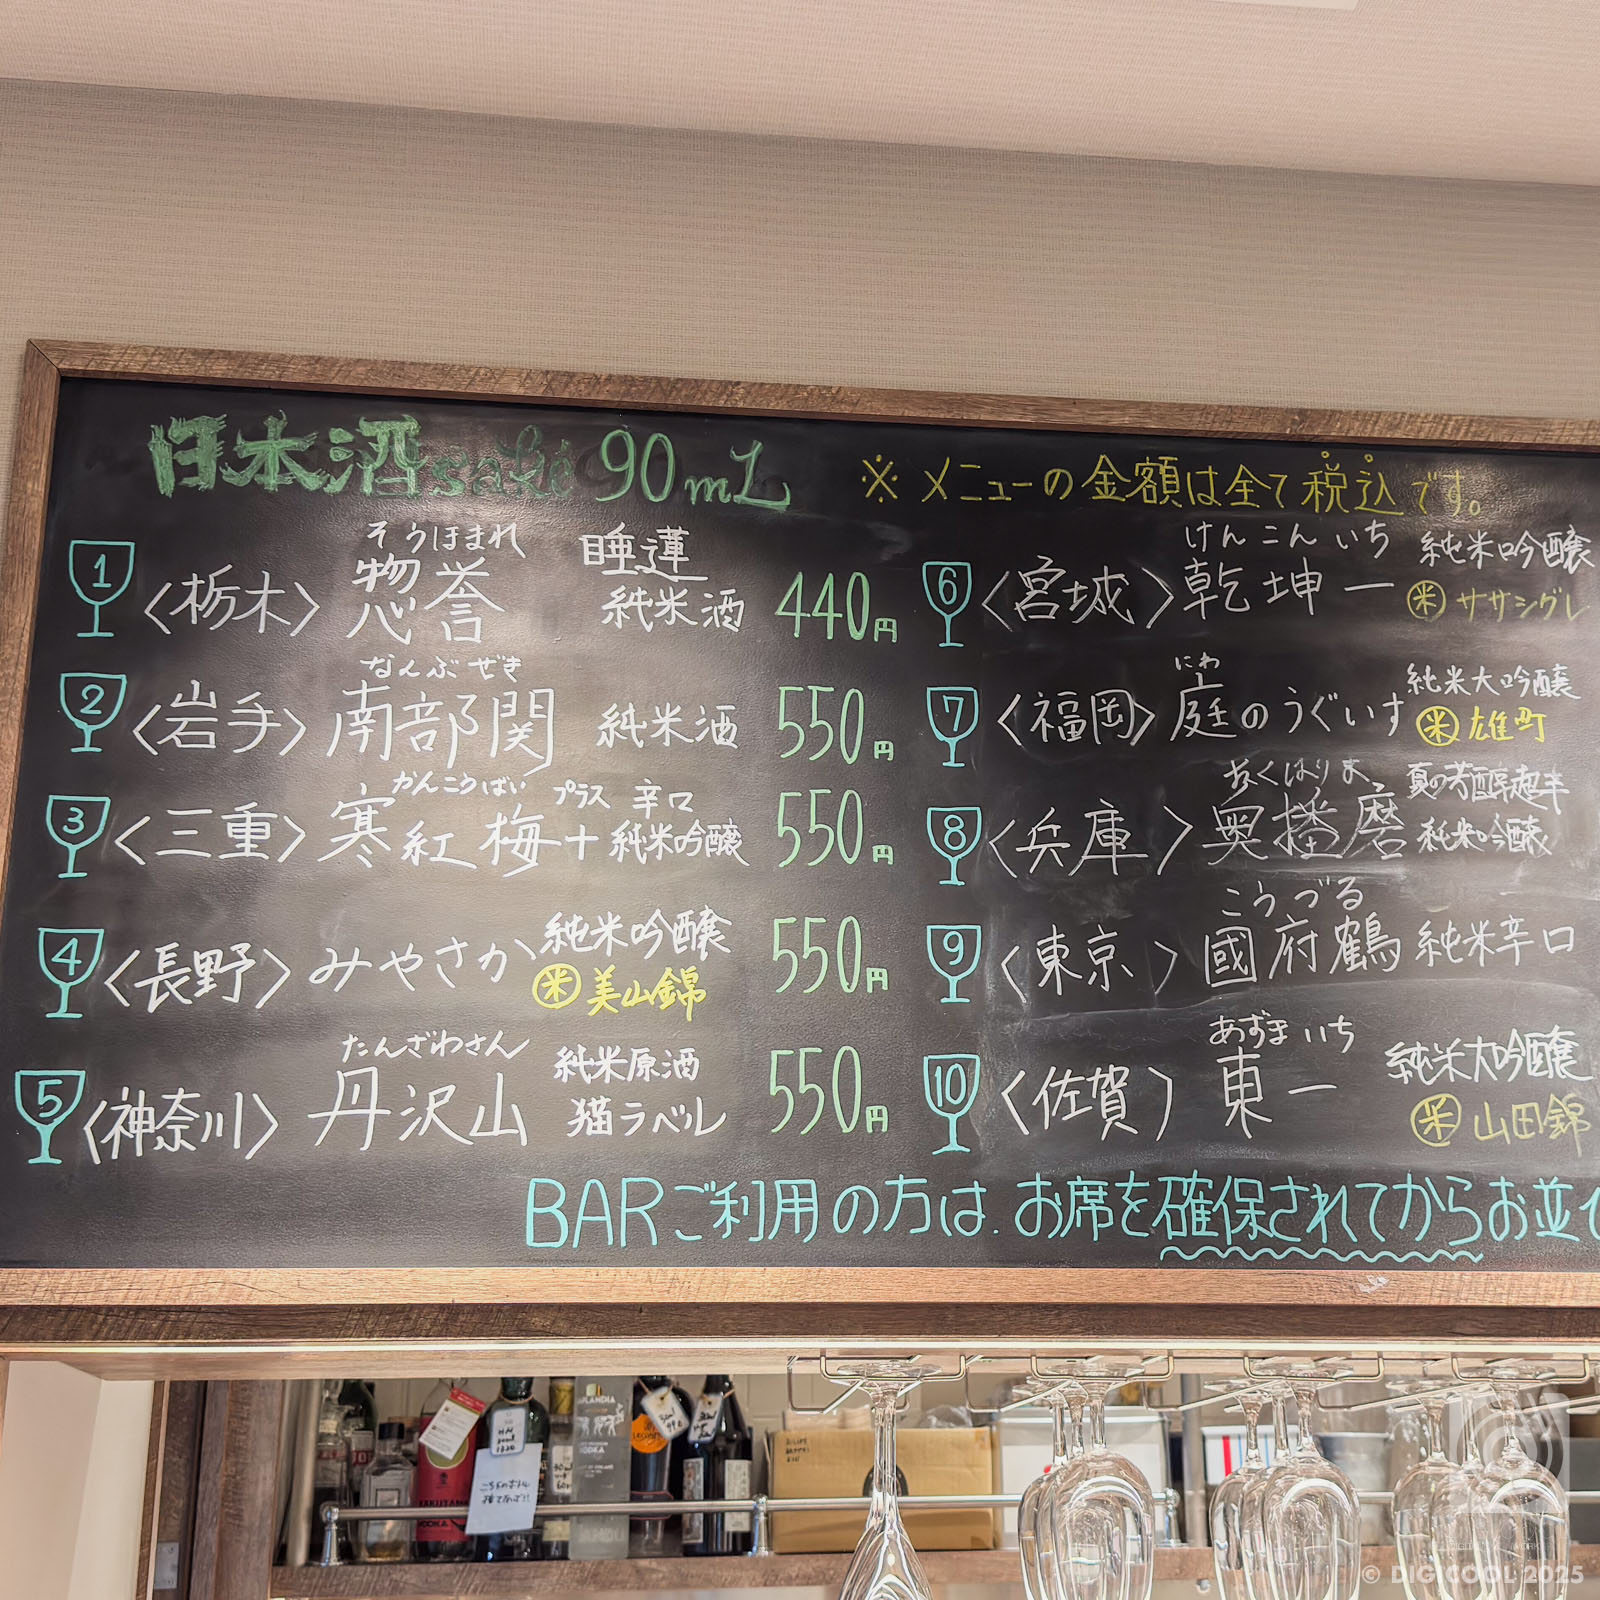 日本酒 saké 90mL
※メニューの金額は全て税込です。
1 〈栃木〉 惣誉 そうほまれ 睡蓮 純米酒 440円
2 〈岩手〉 南部関 なんぶぜき 純米酒 550円
3 〈三重〉 寒紅梅+ かんこうばい プラス 辛口 純米吟醸 550円
4 〈長野〉 みやさか 純米吟醸 米 美山錦 550円
5 〈神奈川〉 丹沢山 たんざわさん 純米原酒 猫ラベル 550円
6 〈宮城〉 乾坤一 けんこんいち 純米吟醸 米 ササシグレ
7 〈福岡〉 庭のうぐいす にわ 純米大吟醸 米 雄町
8 〈兵庫〉 奥播磨 おくはりま 夏の芳醇超辛 純米吟醸
9 〈東京〉 國府鶴 こうづる 純米辛口
10 〈佐賀〉 東一 あずまいち 純米大吟醸 米 山田錦
BARご利用の方は、お席を確保されてからお並
© DIGICOOL 2025